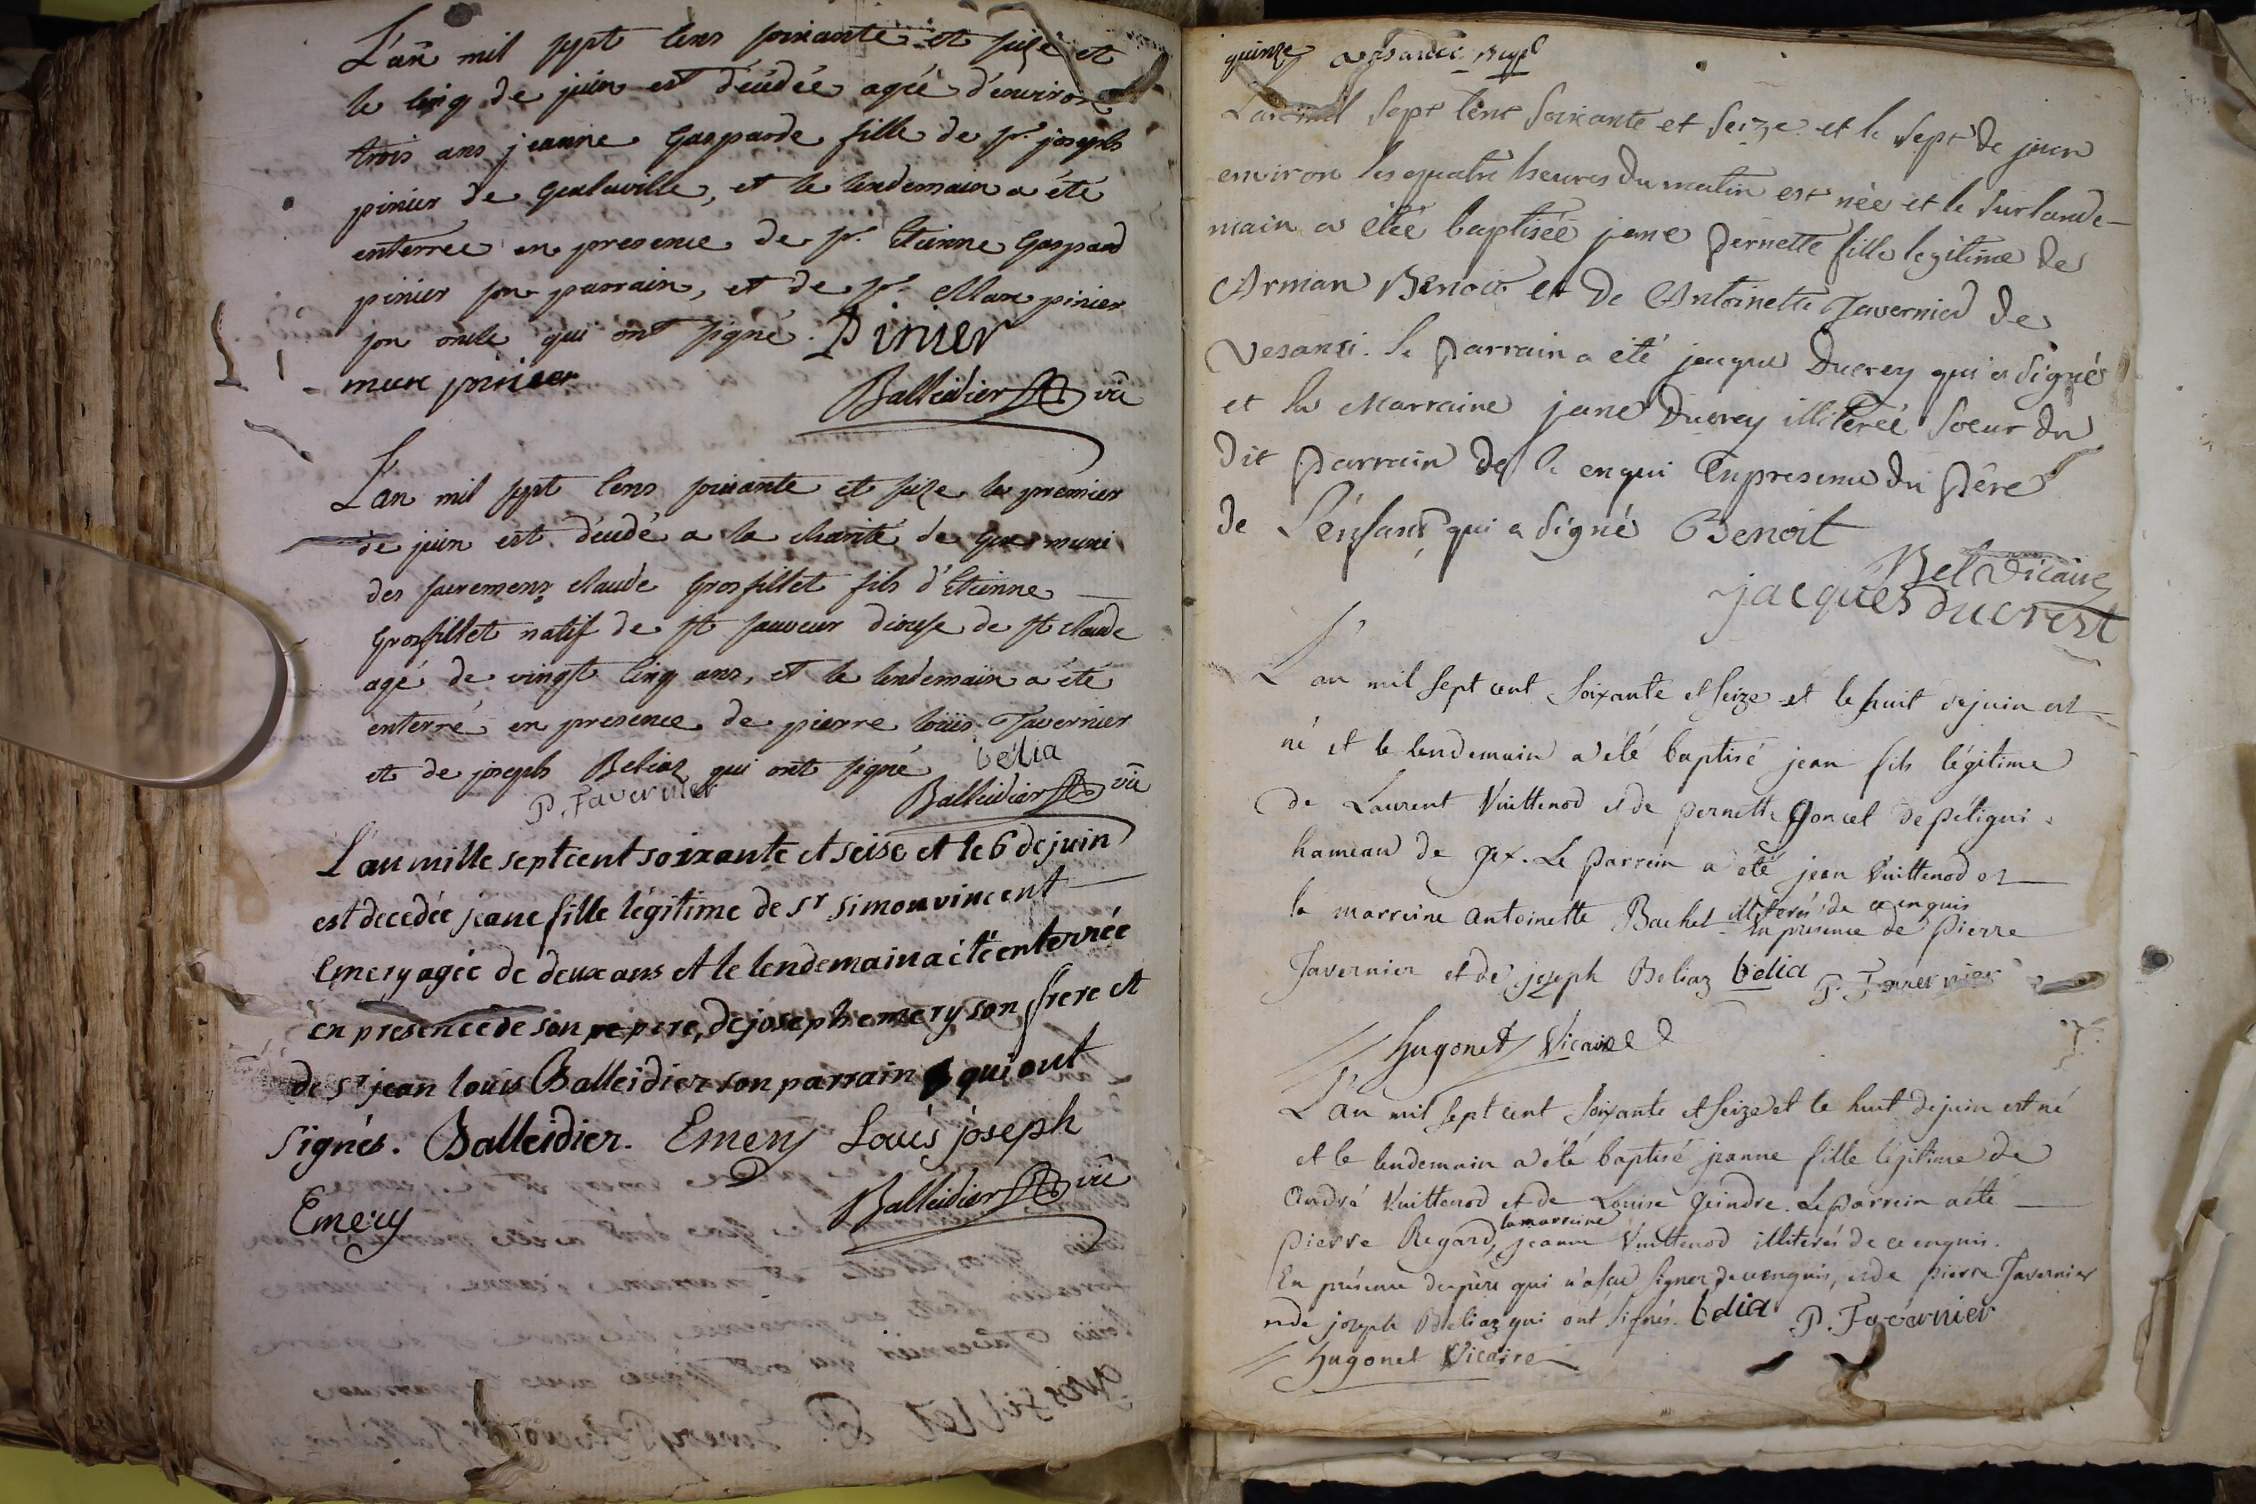 L'an mil sept cens soixante et seize et
le cinq de juin est décédée agée d'environ
trois ans jeanne Gasparde fille de sr. joseph
pinier de , et le lendemain a été
enterrée en presence de sr. Etienne Gaspard
pinier son parrain, et de sr. Marc pinier
son oncle qui ont signé. Pinier
marc pinier
Balleidier vic
L'an mil sept cens soixante et seize le premier
de juin est décédé a la charité de Gex muni
des sacremens claude Grosfillet fils d'Etienne
Grosfillet natif de st sauveur diocese de st claude
agé de vingt cinq ans, et le lendemain a été
enterré en presence de pierre loüis Tavernier
et de joseph Beliaz qui ont signé belia
P. Tavernier Balleidier vic
L'an mille sept cent soixante et seise et le 6 de juin
est decedée jeane fille légitime de sr simon vincent
Emery agée de deux ans et le lendemain a été enterrée
en presence de son pere, de joseph emery son frere et
de sr jean louis Balleidier son parrain qui ont
signés. Balleidier. Emery Louis joseph
Emery Balleidier vic
quinze
L'an mil sept cent soixante et seize et le sept de juin
environ les quatre heures du matin est née et le surlande-
main a étée baptisée jane pernette fille legitime de
Arman Benoit et de Antoinette Tavernier de
Vesanci. le parrain a été jacque Ducrey qui a signé
et la Marraine jane Ducrey illiterée soeur du
dit parrain de ce enqui en presence du père
de l'enfant qui a signé Benoit
Bel Vicaire
jacques ducrest
L'an mil sept cent soixante et seize et le huit de juin est
né et le lendemain a été baptisé jean fils légitime
de Laurent Vuittenod et de pernette Goncet de pétigni
hameau de Gex. Le parrein a été jean Vuittenod et
la marreine antoinette Bachet illiterés de ce enquis
En présence de pierre
Tavernier et de joseph Beliaz belia P. Tavernier
Hugonet Vicaire
L'an mil sept cent soixante et seize et le huit de juin est né
et le lendemain a été baptisé jeanne fille légitime de
André Vuittenod et de Louise Geindre. Le parrein a été
pierre Regard, la marreine jeanne Vuittenod illiterés de ce enquis.
En présence du père qui n'a scu signer de ce enquis, et de pierre Tavernier
et de joseph Beliaz qui ont signés. belia P. Tavernier
Hugonet Vicaire